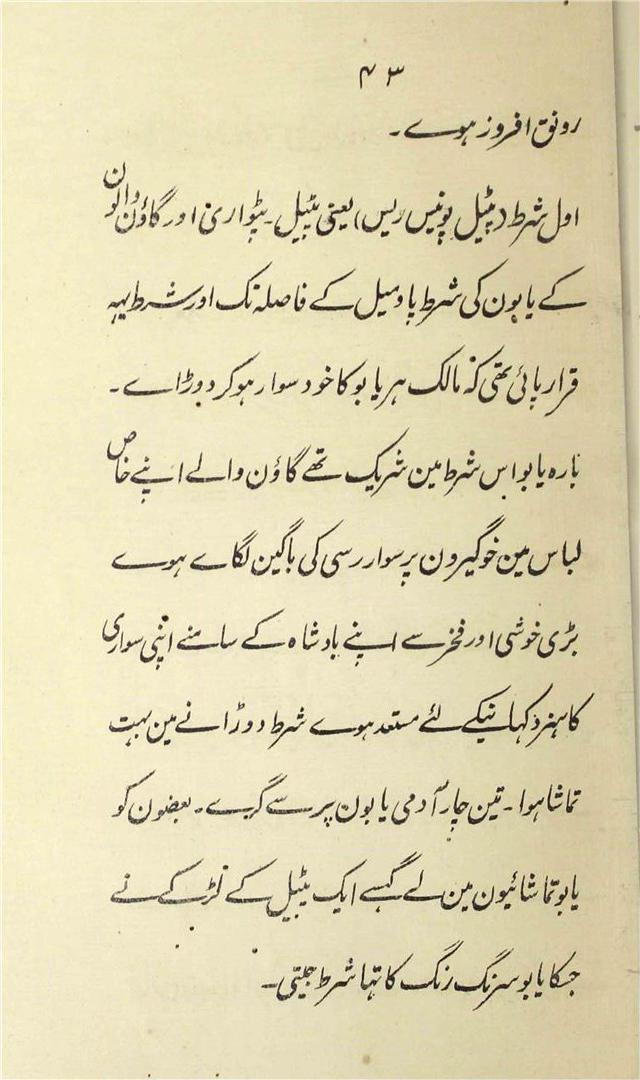 ۴۳
رونق افروز ہوے ۔
اول شرط (پٹیل پونیس ریس) یعنی پٹیل ۔ پٹواری اور گاؤن والون
کے یابون کی شرط پاو میل کے فاصلہ تک اور شرط یہہ
قرار پائی تھی کہ مالک ہر یابو کا خود سوار ہو کر دوڑاے ۔
بارہ یابو اس شرط مین شریک تھے گاؤن والے اپنے خاص
لباس مین خوگیرون پر سوار رسی کی باگین لگاے ہوے
بڑی خوشی اور فخر سے اپنے بادشاہ کے سامنے اپنی سواری
کا ہنر دکہانیکے لئے مستعد ہوے شرط دوڑانے مین بہت
تماشا ہوا ۔ تین چار آدمی یابون پر سے گرے ۔ بعضون کو
یابو تماشائیون مین لے گہسے ایک پٹیل کے لڑکے نے
جسکا یابو سرنگ رنگ کا تہا شرط جیتی ۔